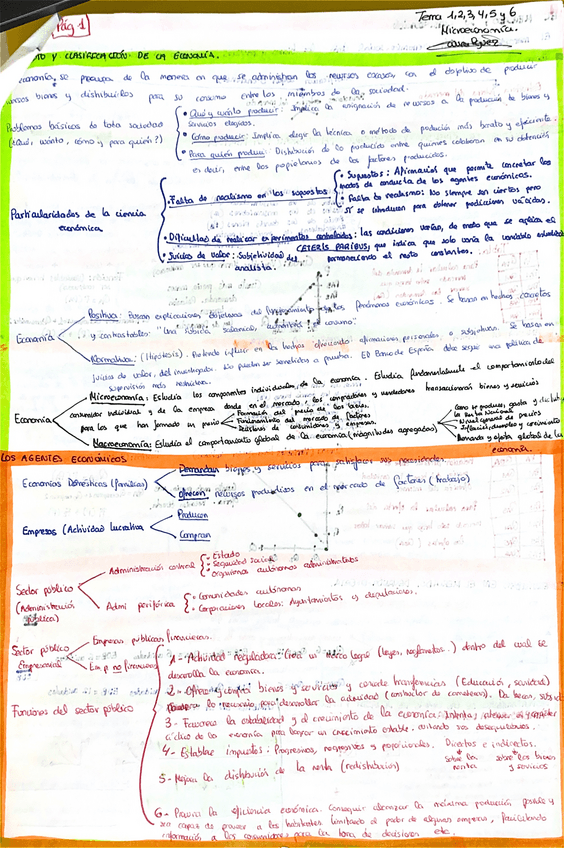 Pág 1
Tema 1,2,3,4,5 y 6
Microeconomía
Y CLASIFICACIÓN DE LA ECONOMÍA.
economía, se preocupa de la manera en que se administran los recursos escasos con el objetivo de producir
bienes y distribuirlos para su consumo entre los miembros de la sociedad.
Problemas básicos de toda sociedad
(¿Qué, cuánto, cómo y para quién?)
• Qué y cuánto producir: Implica la asignación de recursos a la producción de bienes y
servicios elegidos.
• Cómo producir: Implica elegir la técnica o método de producción más barato y eficiente.
• Para quién producir: Distribución de lo producido entre quienes colaboran en su obtención
es decir, entre los propietarios de los factores producidos.
Particularidades de la ciencia
económica
• Falta de realismo en los supuestos
• Supuestos: Afirmaciones que permite concretar los
modos de conducta de los agentes económicos.
• Falta de realismo: No siempre son ciertos pero
si se introducen para obtener predicciones válidas.
• Dificultad de realizar experimentos controlados: las condiciones varían, de modo que se aplica el
CETERIS PARIBUS, que indica que solo varía la variable
permaneciendo el resto constantes.
• Juicios de valor: Subjetividad del
analista.
Economía
Positiva: Buscan explicaciones objetivas del funcionamiento de los fenómenos económicos. Se basa en hechos concretos
y contrastables. "Una subida salarial aumentará el consumo"
Normativa: (Hipótesis). Pretende influir en los hechos ofreciendo afirmaciones personales o subjetivas. Se basan en
juicios de valor, del investigador. No pueden ser sometidos a prueba. El Banco de España debe seguir una política de
supervisión más
Economía
Microeconomía: Estudia los componentes individuales de la economía. Estudia fundamentalmente el comportamiento del
consumidor individual y de la empresa donde en el mercado, los compradores y vendedores transaccionan bienes y servicios
para los que han formado un precio
Formación del precio de los bienes.
Funcionamiento del mercado de factores
Decisiones de consumidores y empresas.
Macroeconomía: Estudia el comportamiento global de la economía (magnitudes agregadas)
Como se produce, gasta y distribuye
la Renta Nacional
Nivel general de precios
Inflación, desempleo y crecimiento
Demanda y oferta global de la
economía.
LOS AGENTES ECONÓMICOS
Economías Domésticas (familias)
Demandan bienes y servicios para satisfacer sus necesidades.
Ofrecen recursos productivos en el mercado de factores (trabajo)
Empresas (Actividad lucrativa
Producen
Compran
Sector público
(Administración
pública)
Administración central
• Estado
• Seguridad social
• Organismos autónomos administrativos
Admi periférica
• Comunidades autónomas
• Corporaciones locales: Ayuntamientos y diputaciones.
Sector público
Empresarial
Empresas públicas financieras.
Emp no financieras
Funciones del sector público
1- Actividad reguladora: Crea un marco legal (leyes, reglamentos..) dentro del cual se
desarrolla la economía.
2- Ofrece y compra bienes y servicios y concede transferencias (Educación, sanidad)
lo necesario para desarrollar la actividad (constructor de carreteras). Da becas, subs
3- Favorece la estabilidad y el crecimiento de la economía. Intenta
cíclico de la economía para lograr un crecimiento estable, evitando sus desequilibrios.
4- Establece impuestos: Progresivos, regresivos y proporcionales. Directos e indirectos.
sobre la renta
sobre los bienes y servicios
5- Mejora la distribución de la renta (redistribución)
6- Procura la eficiencia económica. Conseguir alcanzar la máxima producción posible y
ser capaz de proveer a los habitantes limitando el poder de algunas empresas, facilitando
información a los consumidores para la toma de decisiones etc.